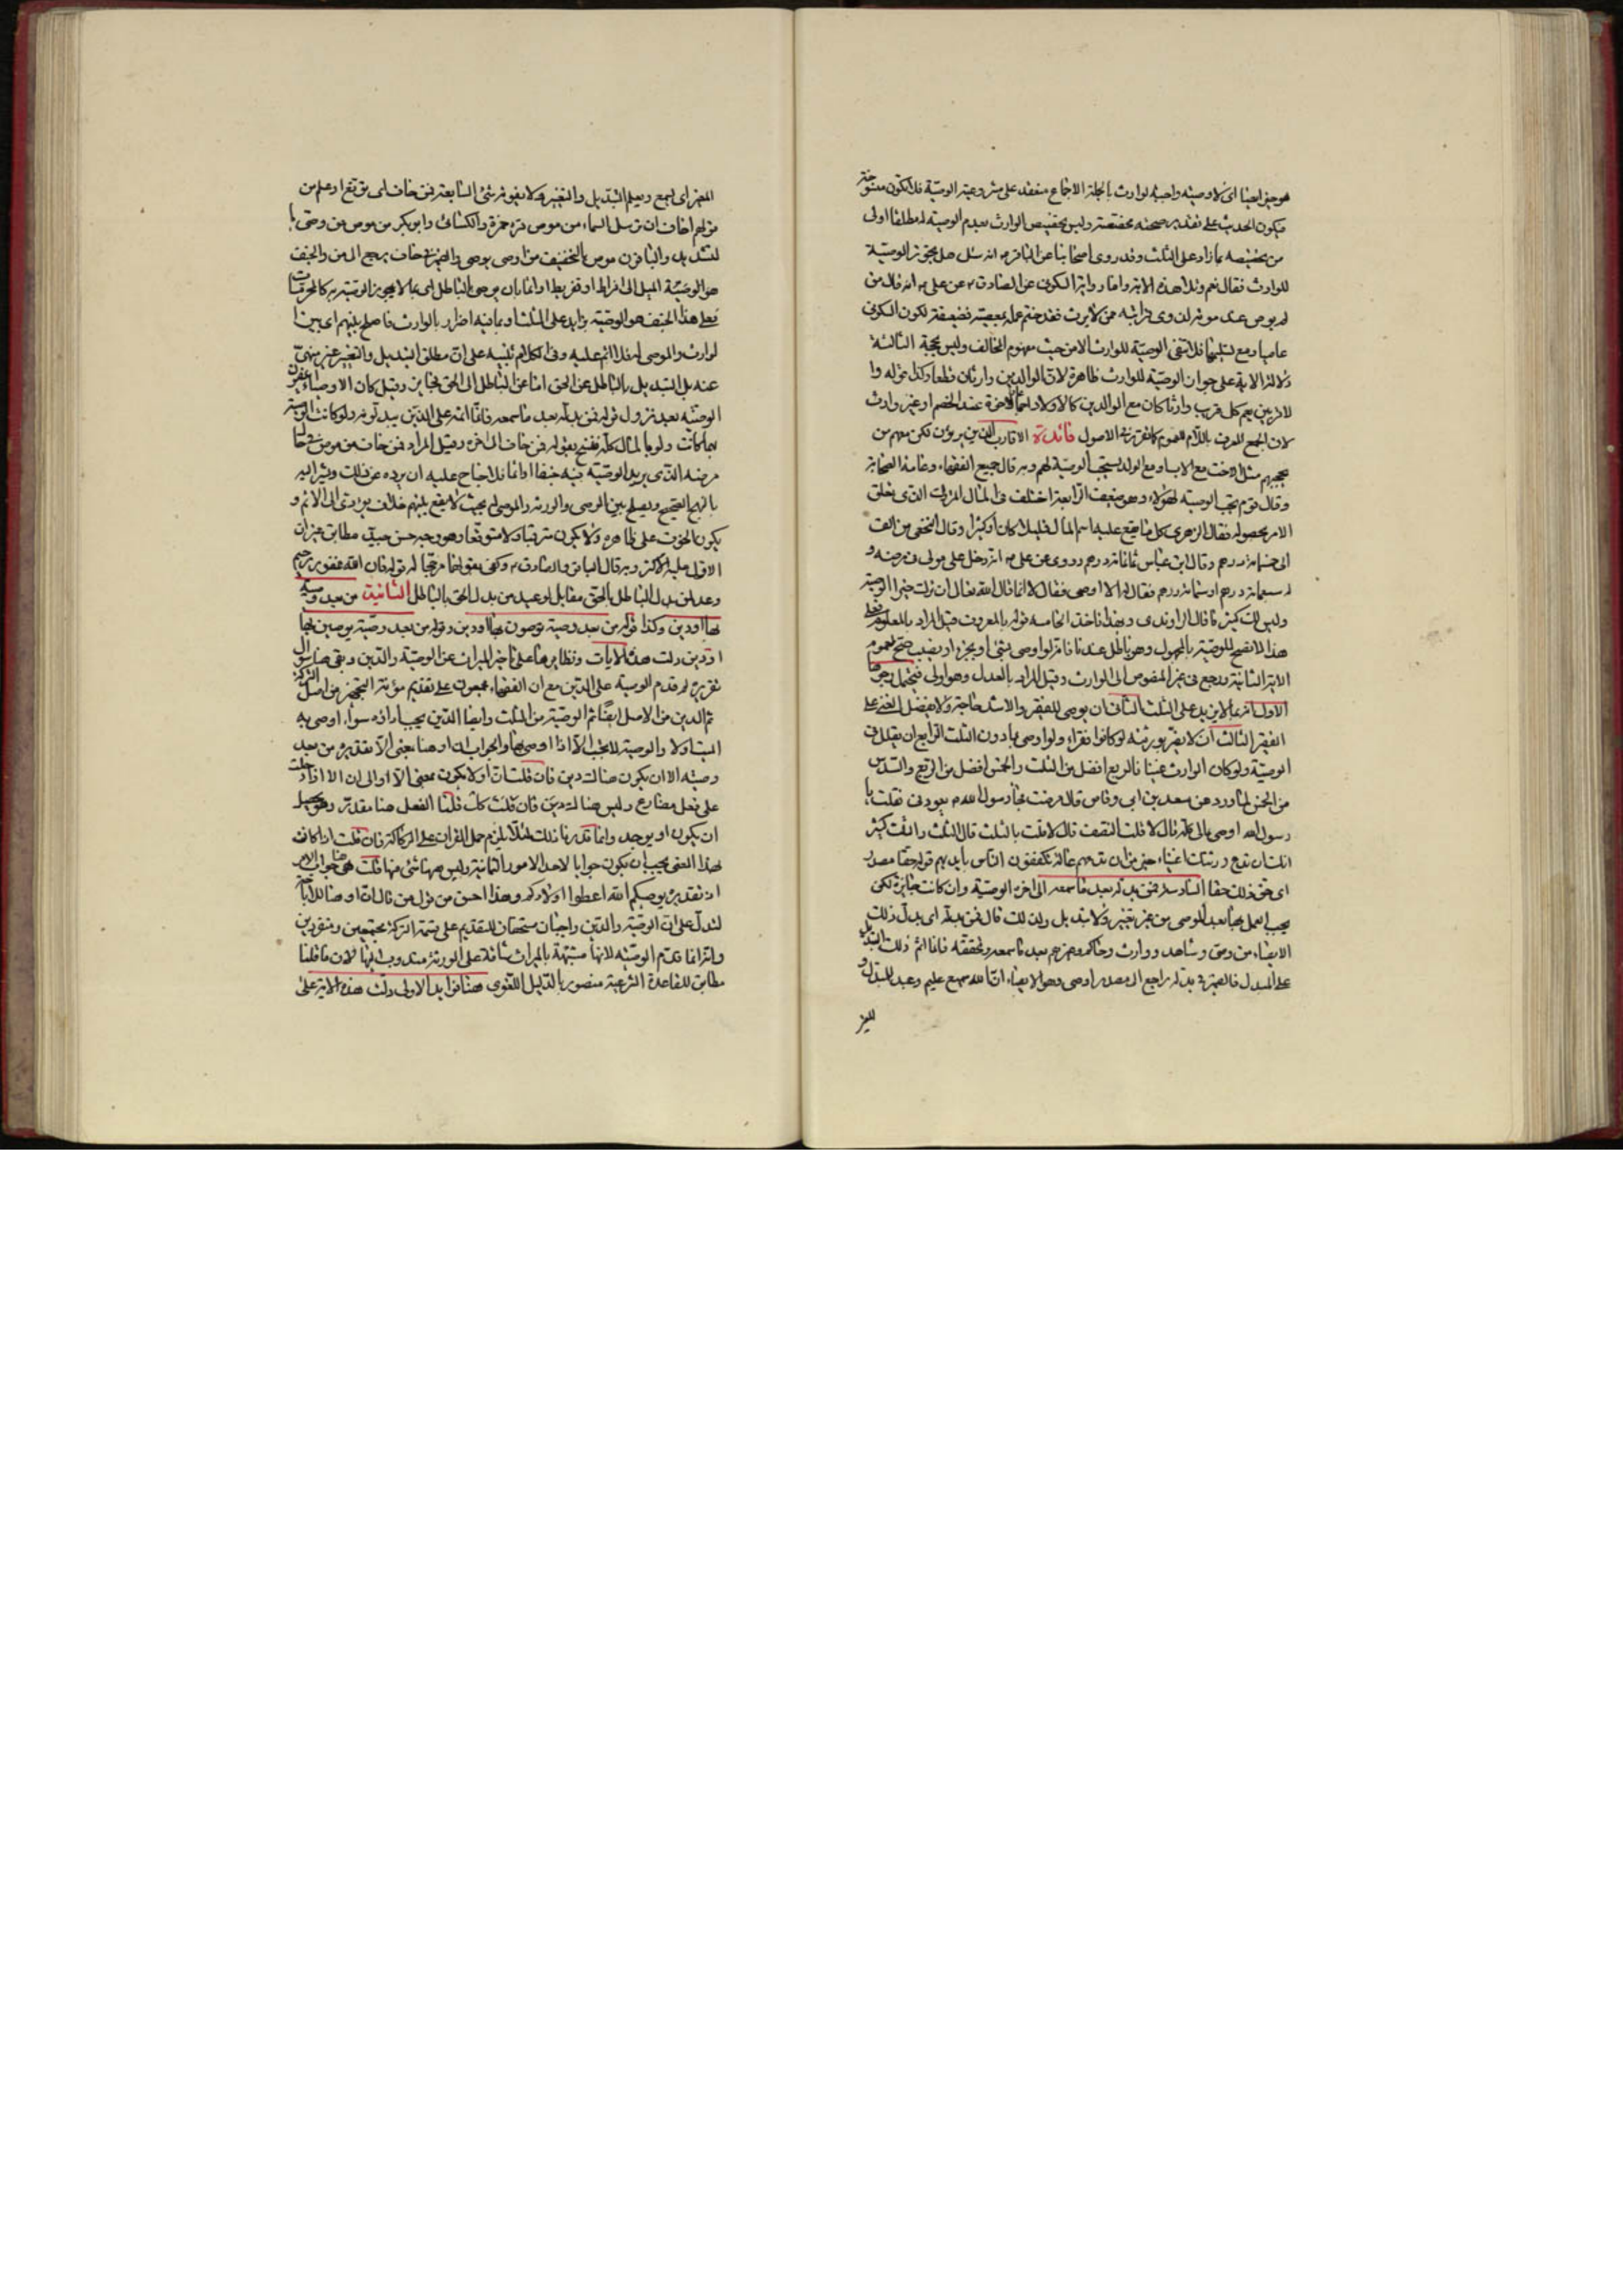 هو جنفا ايضا اى لا وصيّة واجبة لوارث بالجملة الاجماع منعقد على مشروعيّة الوصيّة فلا تكون منسوخة
فيكون الحديث على تقدير صحته مخصّصة وليس تخصيص الوارث بعدم الوصيّة له مطلقا اولى
من تخصيصه بما زاد على الثلث وقد روى اصحابنا عن الباقر م انه سئل هل يجوز الوصيّة
للوارث فقال نعم وتلا هذه الاية واما رواية السكونى عن الصادق م عن على م انه قال من
لم يوص عند موته لذوى قرابته ممن لا يرث فقد ختم عمله بمعصية فضعيفة لكون السكونى
عاميا ومع تسليمها فلا تنفى الوصيّة للوارث الا من حيث مفهوم المخالف وليس بحجة الثالثة
دلالة الاية على جواز الوصيّة للوارث ظاهرة لان الوالدين وارثان قطعا وكذا قوله وا
لاقربين يعم كل قريب وارثا كان مع الوالدين كالاولاد او غير وارث
لان الجمع المعرف باللام للعموم كما تقرر فى الاصول فائدة الاقارب الذين يرثون لكن معهم من
يحجبهم مثل الاخت مع الاب او مع الولد يستحب الوصيّة لهم وبه قال جميع الفقهاء وعامة الصحابة
وقال قوم يجب الوصية لهؤلاء وهو ضعيف الرابعة اختلف فى المال المتروك الذى يعلق
الامر بحصوله فقال الزهرى كل ما يقع عليه اسم المال قليلا كان او كثيرا وقال النخعى من الف
الى خمسمائة درهم وقال ابن عباس ثمانمائة درهم وروى عن على م انه دخل على مولى فى مرضه و
له سبعمائة درهم او ستمائة درهم فقال الا اوصى فقال لا انما قال الله تعالى ان ترك خيرا الوصية
وليس لك كبير مال قال الراوندى وبهذا ناخذ الخامسة قوله بالمعروف قيل المراد بالمعلوم فعلى
هذا لا تصح الوصيّة بالمجهول وهو باطل عندنا فانه لو اوصى بشئ او بجزء او نصيب صح لعموم
الاية الثانية ورجع فى غير المنصوص الى الوارث وقيل المراد بالعدل وهو اولى فيحتمل وجوها
الاول انه لا يزيد على الثلث الثانى ان يوصى للفقير والاشد حاجة ولا يفضل الغنى على
الفقير الثالث ان لا يضر بورثته لو كانوا فقراء ولو اوصى بما دون الثلث الرابع ان يقلل فى
الوصيّة ولو كان الوارث غنيا فالربع افضل من الثلث والخمس افضل من الربع والسدس
من الخمس لما ورد عن سعد بن ابى وقاص قال مرضت فجاء رسول الله م يعودنى فقلت يا
رسول الله اوصى بمالى كله قال لا قلت النصف قال لا قلت بالثلث قال الثلث والثلث كثير
انك ان تدع ورثتك اغنياء خير من ان تدعهم عالة يتكففون الناس بايديهم قوله حقا مصدر
اى حق ذلك حقا السادسة فمن بدله بعد ما سمعه الى اخره الوصيّة وان كانت جائزة لكن
يجب العمل بها بعد الموصى من غير تغيير ولا تبديل ولذلك قال فمن بدله اى بدل ذلك
الايصاء من وصى وشاهد ووارث وحاكم وغيرهم بعد ما سمعه وتحققه فانما اثم ذلك التبديل
على المبدل فالضمير فى بدله راجع الى مصدر اوصى وهو الايصاء ان الله سميع عليم وعيد للمبدل و
المغير اى يسمع ويعلم التبديل والتغيير ولا يفوته شئ السابعة فمن خاف اى توقع او علم من
قولهم اخاف ان ترسل السماء من موص قرء حمزة والكسائى وابو بكر من موص من وصى با
لتشديد والباقون موص بالتخفيف من اوصى يوصى والضمير فى خاف يرجع الى من والجنف
هو الوصيّة الميل الى افراط او تفريط او اثما بان يوصى بالباطل اى بما لا يجوز الوصيّة به كالمحرمات
فعلى هذا الجنف هو الوصيّة بزايد على الثلث او بما فيه اضرار بالوارث فاصلح بينهم اى بين ا
لوارث والموصى له فلا اثم عليه وفى الكلام تنبيه على ان مطلق التبديل والتغيير غير منهى
عنه بل التبديل بالباطل عن الحق اما عن الباطل الى الحق فجايز وقيل كان الاوصياء يمضون
الوصيّة بعد نزول قوله فمن بدله بعد ما سمعه فانما اثمه على الذين يبدلونه ولو كانت الوصية
بما كانت ولو بالمال كله فنسخ بقوله فمن خاف الى اخره وقيل المراد فمن خاف من موص فى حال
مرضه الذى يريد الوصيّة فيه جنفا او اثما فلا جناح عليه ان يرده عن ذلك ويشير اليه
بالنهج الصحيح ويصلح بين الموصى والورثة والموصى له بحيث لا يقع بينهم خلاف يؤدى الى الاثم و
يكون الخوف على ظاهره ولا يكون مترقبا ولا متوقعا وهو وجه حسن جيد مطابق غير ان
الاول عليه الاكثر وبه قال الباقر والصادق م وكفى بقولهما مرجحا له قوله فان الله غفور رحيم
وعد لمن بدل الباطل بالحق مقابل لوعيد من بدل الحق بالباطل الثانية من بعد وصية
بها او دين وكذا قوله من بعد وصية توصون بها او دين وقوله من بعد وصيّة يوصين بها
او دين دلت هذه الايات ونظايرها على تاخير الميراث عن الوصيّة والدين وبقى هنا سؤال
تقريره لم قدم الوصية على الدين مع ان الفقهاء مجمعون على تقديم مؤنة التجهيز من اصل التركة
ثم الدين من الاصل ايضا ثم الوصيّة من الثلث وايضا الدين يجب اداؤه سواء اوصى به
الميت اولا والوصية لا يجب الا اذا اوصى بها والجواب ان او هنا بمعنى الا تقديره من بعد
وصيّة الا ان يكون هناك دين فان قلت ان او لا يكون بمعنى الا او الى ان الا اذا دخلت
على فعل مضارع وليس هنا كذلك دين فان قلت كان قلنا الفعل هنا مقدر وهو يحصل
ان يكون او يوجد وانما قدرنا ذلك لئلا يلزم حمل القران على الركاكة فان قلت اذا كانت
بهذا المعنى يجب ان يكون جوابا لاحد الامور الثمانية وليس ههنا شئ منها قلت هى هنا جواب الامر
اذ تقديره يوصيكم الله اعطوا اولادكم وهذا احسن من قول من قال ان او هنا للاباحة
لتدل على ان الوصيّة والدين واجبان مستحقان للتقديم على قسمة التركة مجتمعين ومنفردين
وانه انما قدم الوصيّة لانها مشبهة بالميراث شاقة على الورثة مندوب اليها لان ما قلنا
مطابق للقاعدة الشرعية منصور بالدليل اللغوى هنا فوايد الاولى دلت هذه الاية على